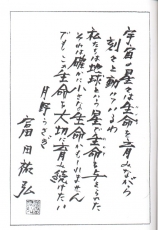 宇宙の星々は生命を育みながら
刻々と動いているわ
私たちは地球という星から生命を与えられた
それは確かに小さな生命かもしれません
でも、この生命を大切に育み続けたい
月野うさぎ
富田祐弘